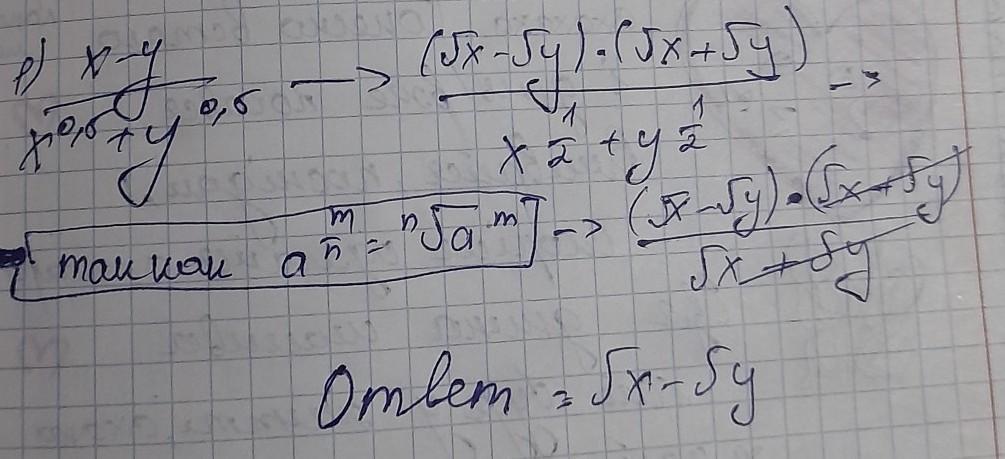 e) x-y / x^0,5 + y^0,5 → (√x - √y) · (√x + √y) / x^1/2 + y^1/2 →
так как a^m/n = ⁿ√a^m → (√x - √y) · (√x + √y) / √x + √y
Ответ = √x - √y